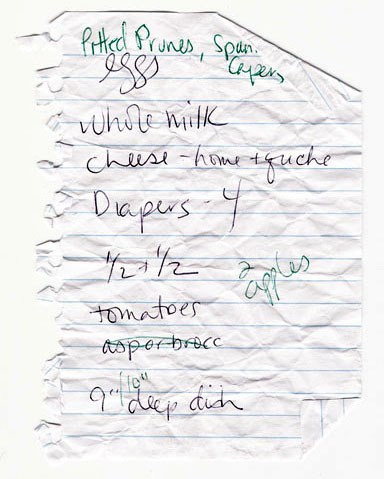 Pitted Prunes, Span.
Capers
eggs
whole milk
cheese - home + quche
Diapers - 4
1/2 + 1/2
2 apples
tomatoes
asp or brocc
9"/10" deep dish